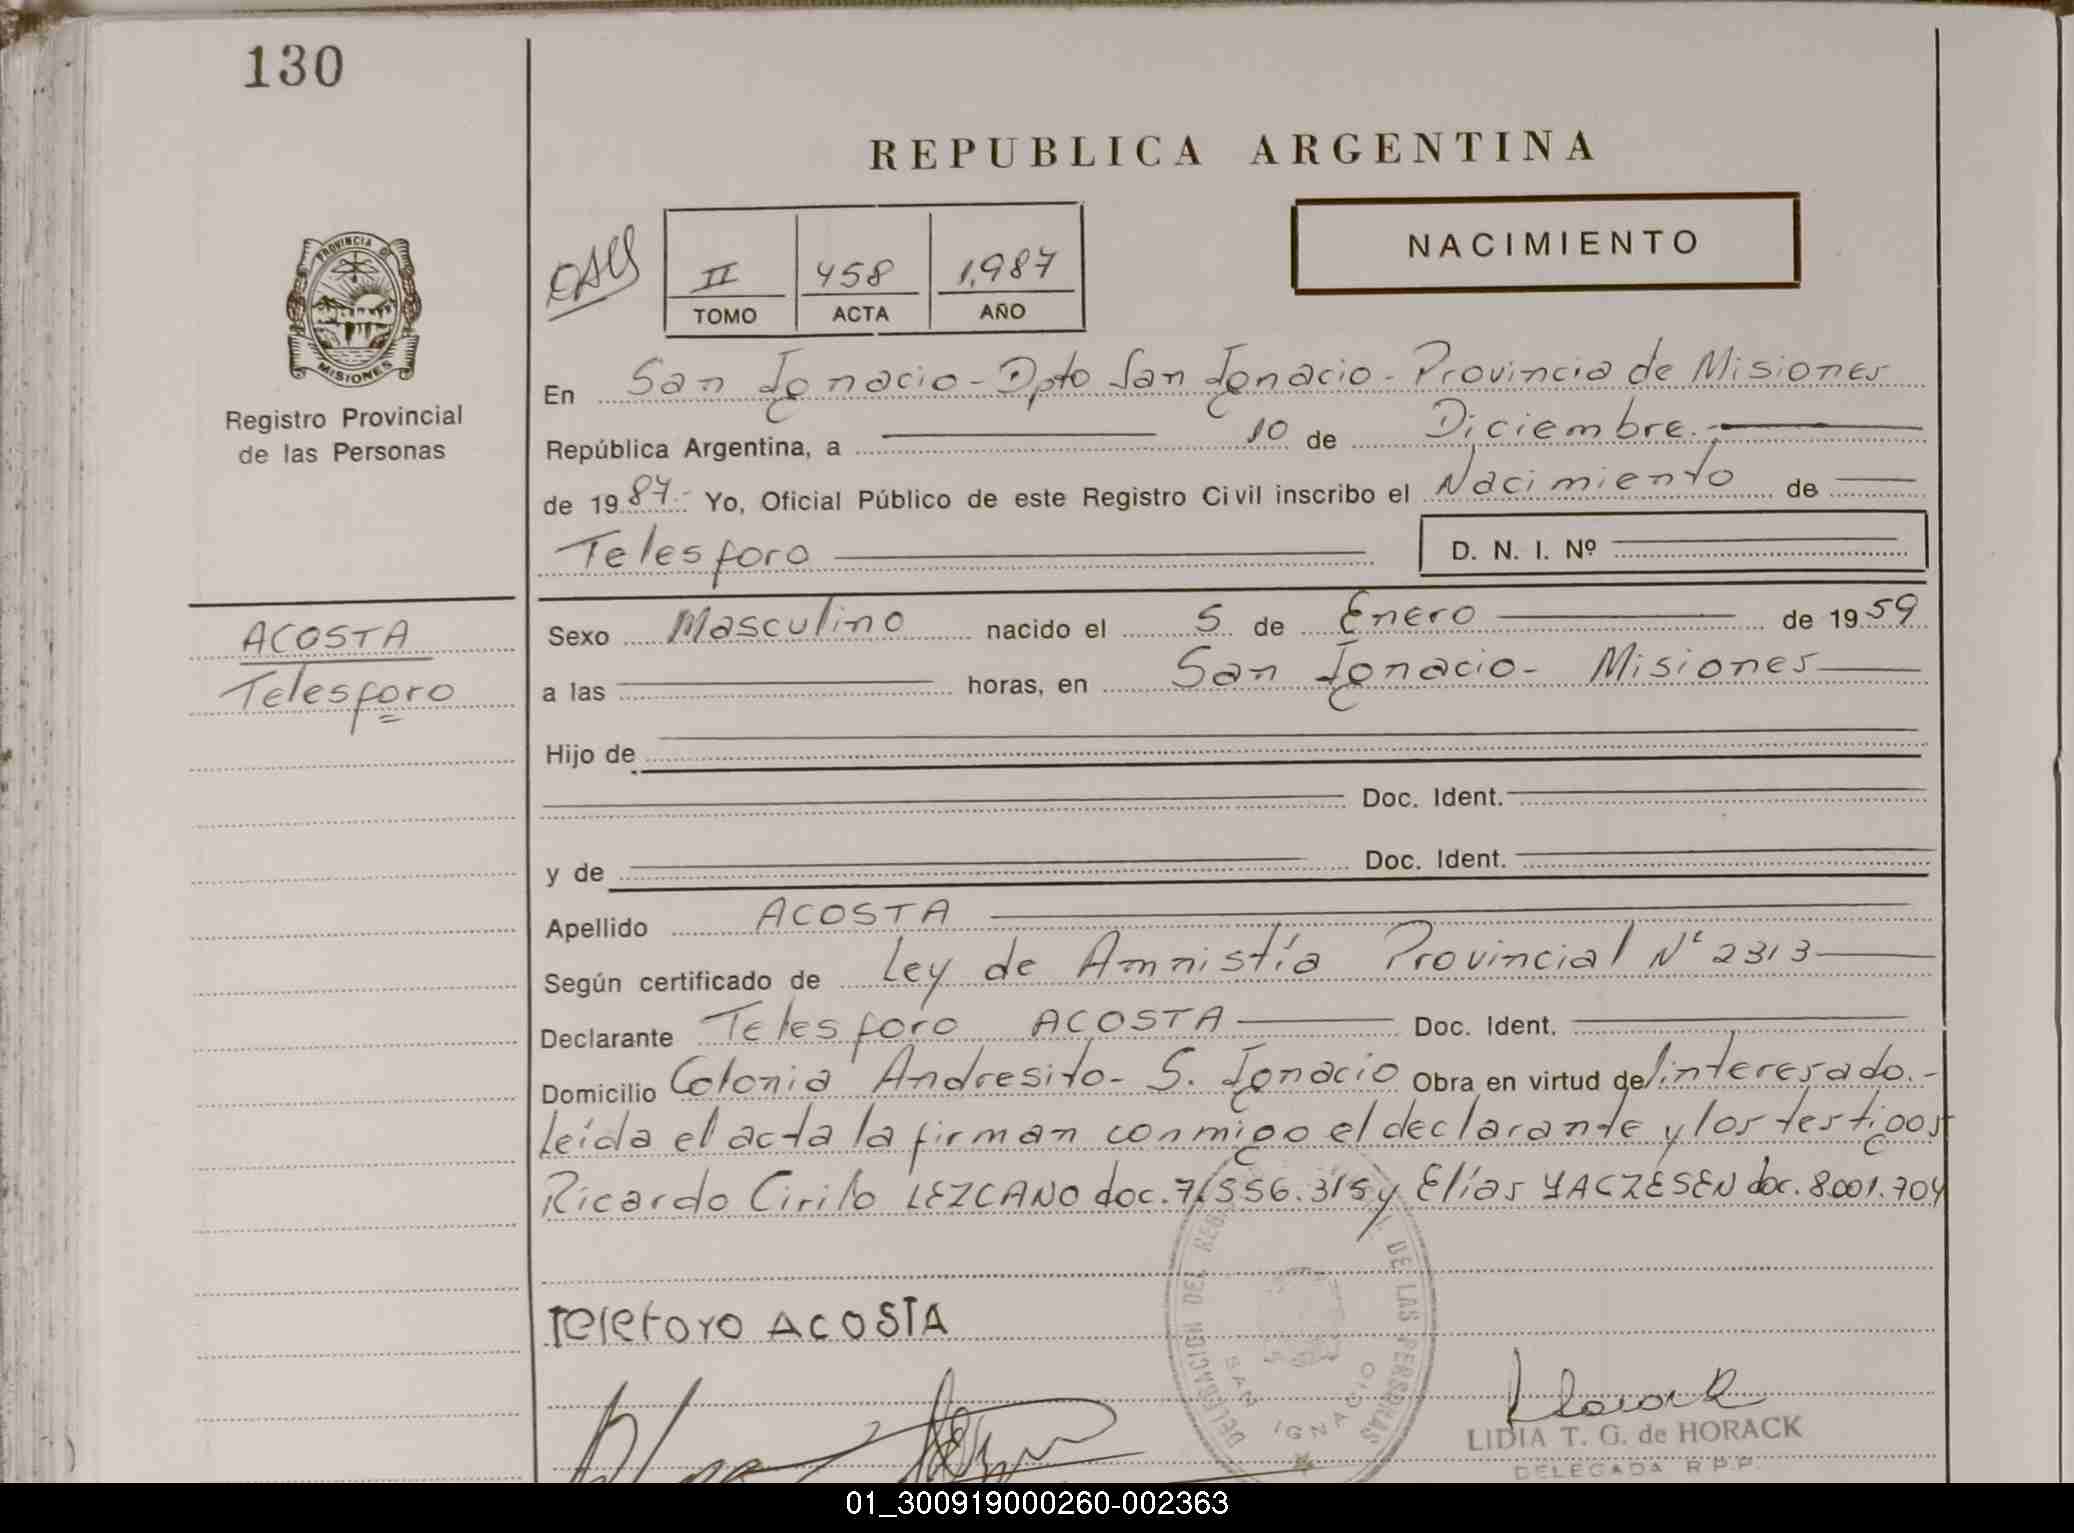 130
REPUBLICA ARGENTINA
NACIMIENTO
II 458 1,987
TOMO ACTA AÑO
PROVINCIA DE
MISIONES
Registro Provincial
de las Personas
En San Ignacio - Dpto San Ignacio - Provincia de Misiones
República Argentina, a 10 de Diciembre.-
de 1987.- Yo, Oficial Público de este Registro Civil inscribo el Nacimiento de
Telesforo D. N. I. Nº
ACOSTA
Telesforo
Sexo Masculino nacido el 5 de Enero de 1959
a las horas, en San Ignacio - Misiones
Hijo de
Doc. Ident.
y de Doc. Ident.
Apellido ACOSTA
Según certificado de Ley de Amnistía Provincial Nº 2313
Declarante Telesforo ACOSTA Doc. Ident.
Domicilio Colonia Andresito - S. Ignacio Obra en virtud del interesado.-
Leída el acta la firman conmigo el declarante y los testigos
Ricardo Cirilo LEZCANO doc. 7.556.315 y Elías YACZESEN doc. 8.001.704
TeleForo ACOSTA
DELEGACION DEL DE LAS PERSONAS
SAN IGNACIO
LIDIA T. G. de HORACK
DELEGADA R.P.P.
01_300919000260-002363